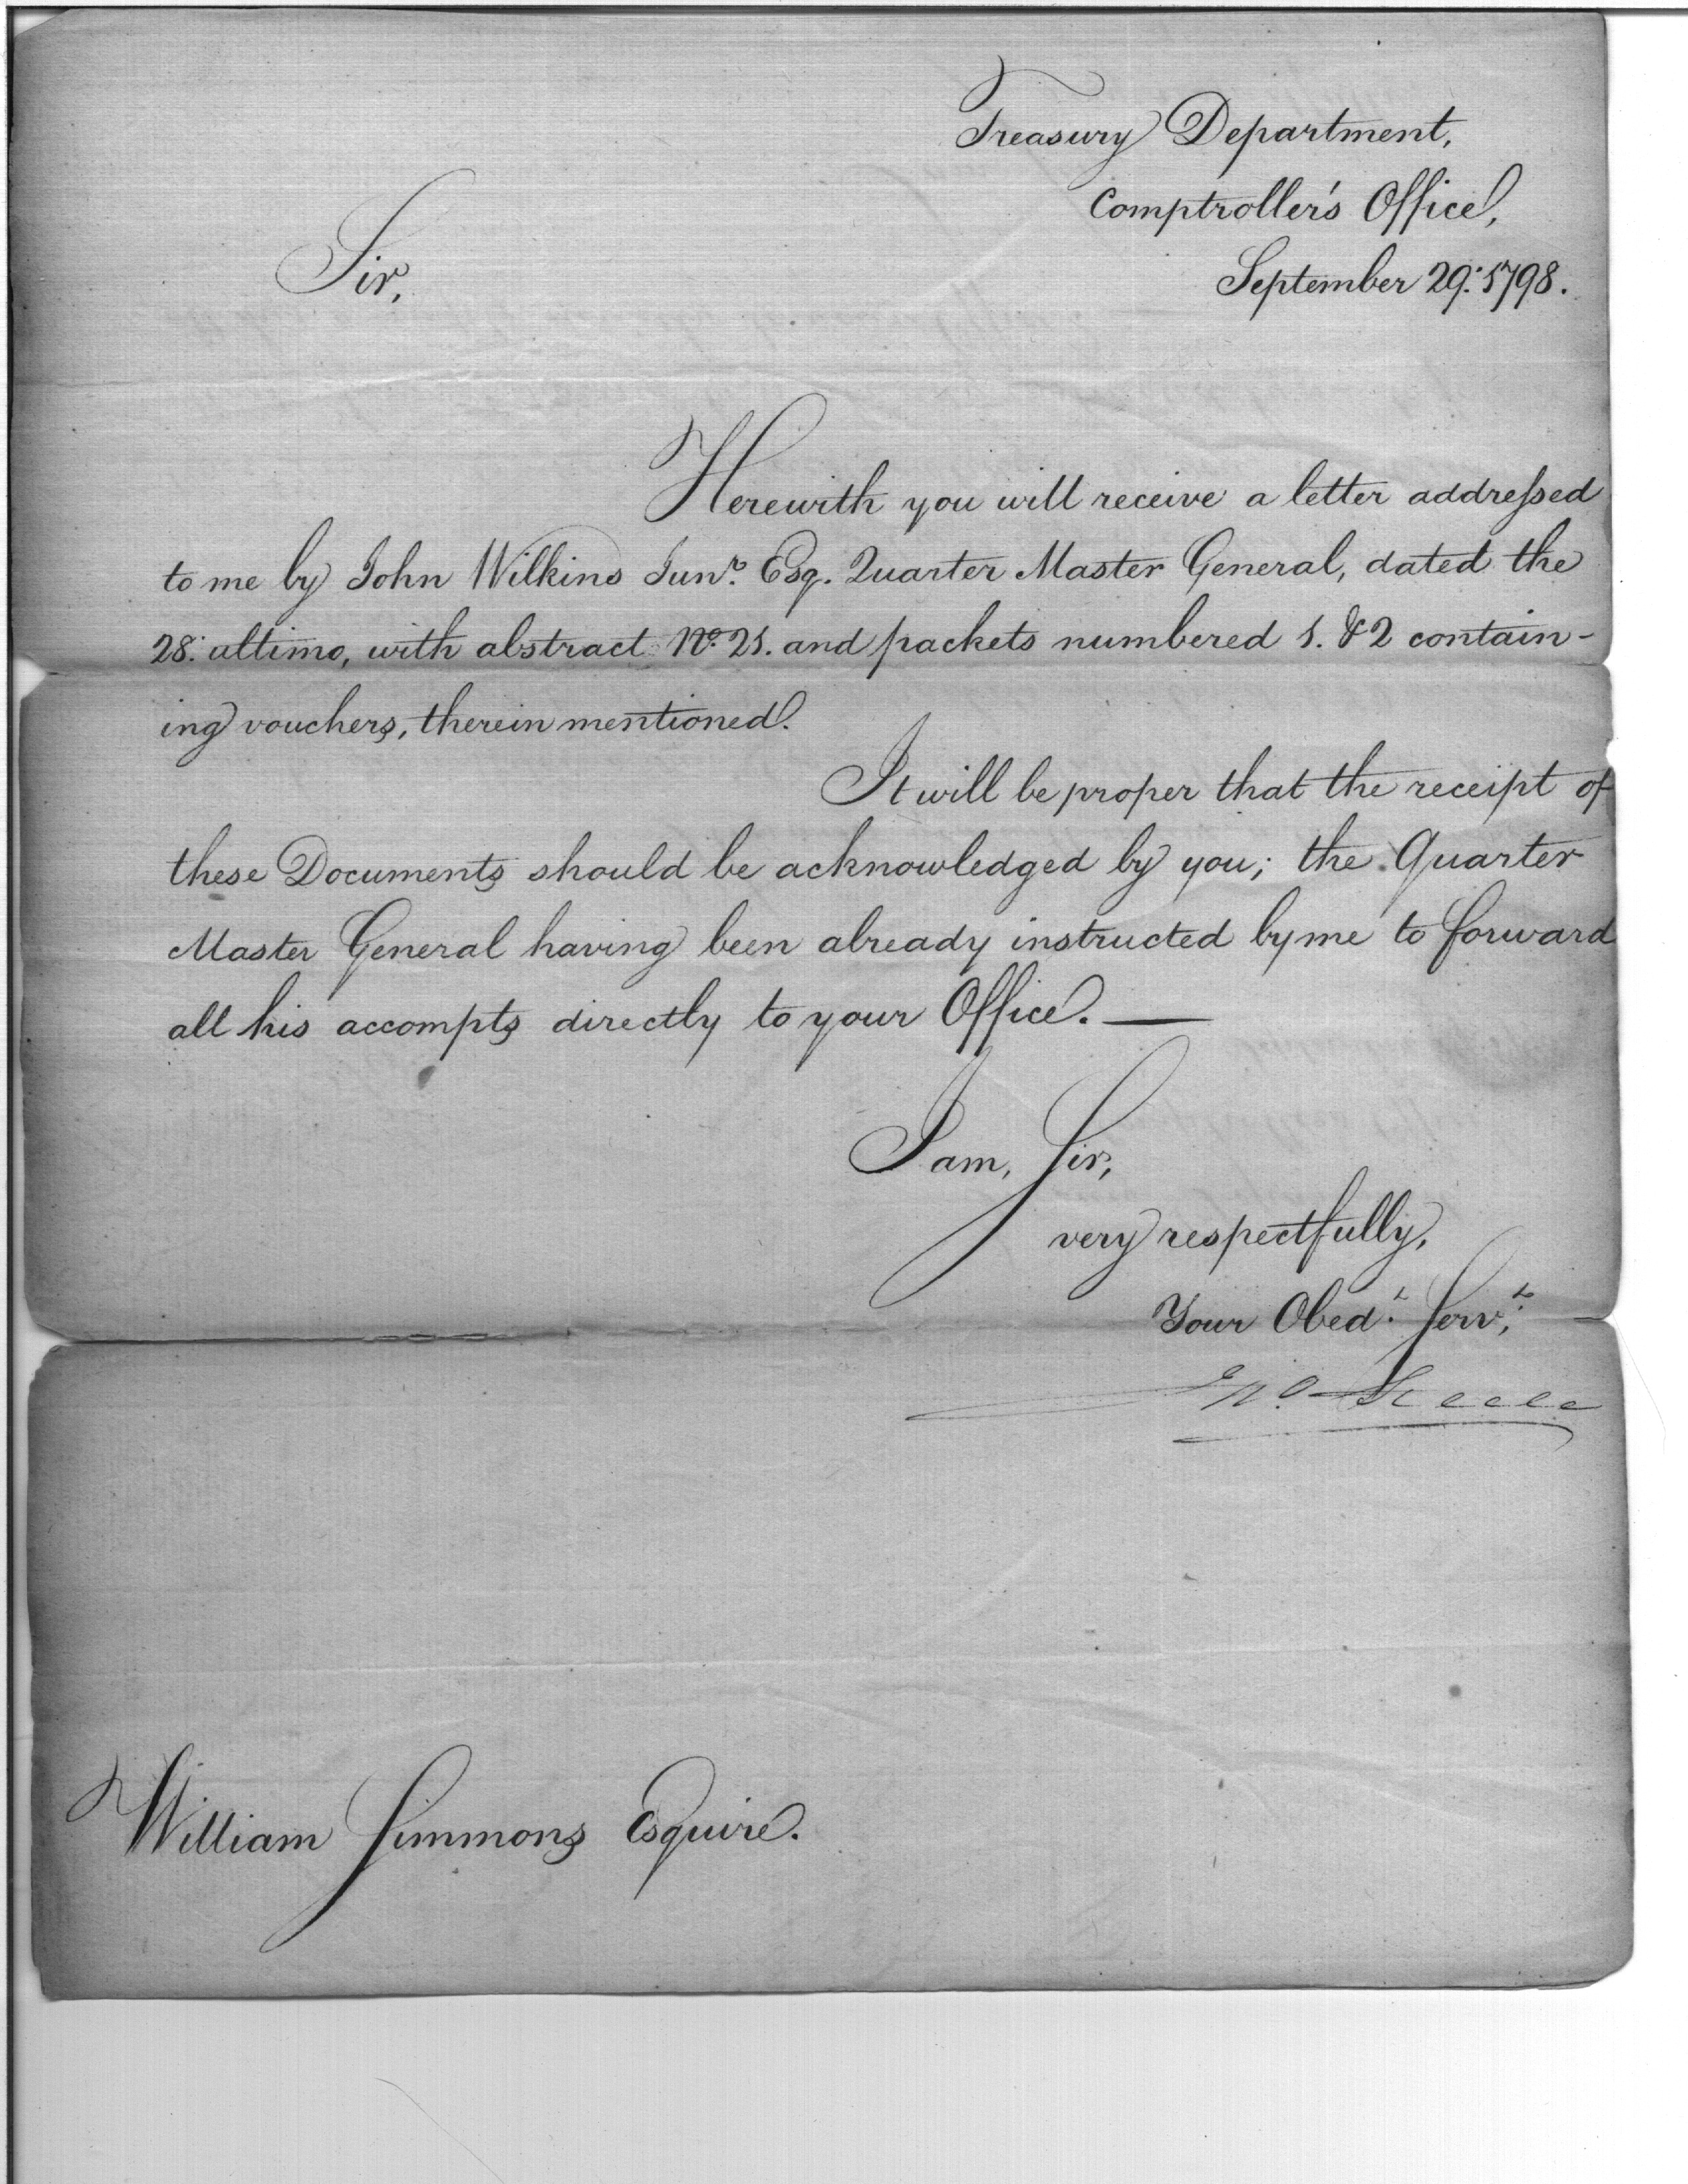 Treasury Department,
Comptroller's Office,
September 29: 1798.
Sir,
Herewith you will receive a letter addreſsed
to me by John Wilkins Junr. Esq. Quarter Master General, dated the
28: ultimo, with abstract No. 21. and packets numbered 1. & 2 contain-
ing vouchers, therein mentioned.
It will be proper that the receipt of
these Documents should be acknowledged by you; the Quarter
Master General having been already instructed by me to forward
all his accompts directly to your Office. —
I am, Sir,
very respectfully,
Your Obedt. Servt.
Jno. Steele
William Simmons Esquire.